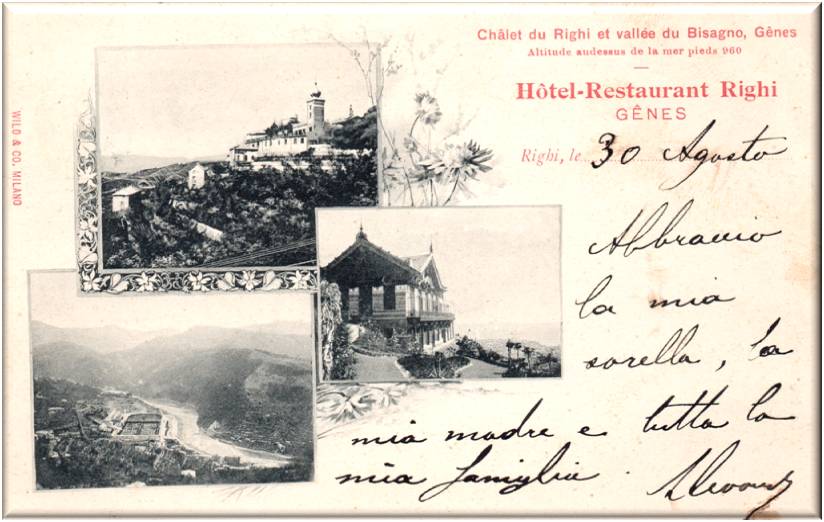 Châlet du Righi et vallée du Bisagno, Gênes
Altitude audessus de la mer pieds 960
Hôtel-Restaurant Righi
GÊNES
Righi, le 30 Agosto
Abbraccio
la mia
sorella, la
mia madre e tutta la
mia famiglia
WILD & CO. MILANO